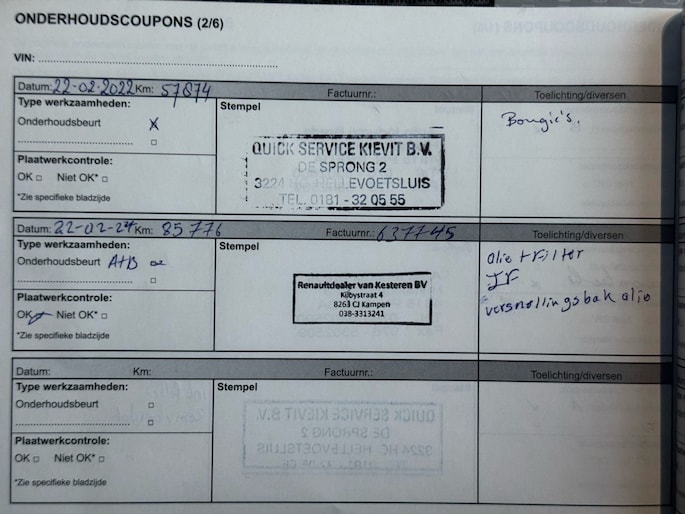 ONDERHOUDSCOUPONS (2/6)
VIN:
Datum: 22-02-2022 Km: 57874 Factuurnr.: Toelichting/diversen
Type werkzaamheden:
Onderhoudsbeurt X
Plaatwerkcontrole:
OK □ Niet OK* □
*Zie specifieke bladzijde
Stempel
QUICK SERVICE KIEVIT B.V.
DE SPRONG 2
3224 HELLEVOETSLUIS
TEL. 0181 - 32 05 55
Bougie's.
Datum: 22-02-24 Km: 85776 Factuurnr.: 637745 Toelichting/diversen
Type werkzaamheden:
Onderhoudsbeurt A+B
Plaatwerkcontrole:
OK Niet OK* □
*Zie specifieke bladzijde
Stempel
Renaultdealer van Kesteren BV
Kilbystraat 4
8263 CJ Kampen
038-3313241
olie + Filter
IF
versnellingsbak olie
Datum: Km: Factuurnr.: Toelichting/diversen
Type werkzaamheden:
Onderhoudsbeurt □
Plaatwerkcontrole:
OK □ Niet OK* □
*Zie specifieke bladzijde
Stempel